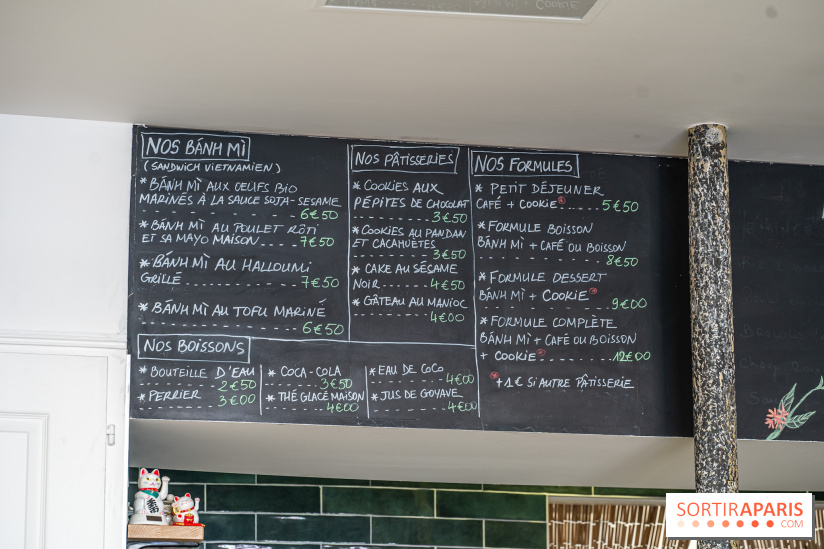 NOS BÁNH MÌ
(SANDWICH VIETNAMIEN)
* BÁNH MÌ AUX OEUFS BIO
MARINÉS À LA SAUCE SOJA-SESAME
6€50
* BÁNH MÌ AU POULET RÔTI
ET SA MAYO MAISON 7€50
* BÁNH MÌ AU HALLOUMI
GRILLÉ 7€50
* BÁNH MÌ AU TOFU MARINÉ
6€50
NOS BOISSONS
* BOUTEILLE D'EAU
2€50
* PERRIER 3€00
* COCA-COLA
3€50
* THÉ GLACÉ MAISON
4€00
* EAU DE COCO
4€00
* JUS DE GOYAVE
4€00
NOS PÂTISSERIES
* COOKIES AUX
PÉPITES DE CHOCOLAT
3€50
* COOKIES AU PANDAN
ET CACAHUÈTES
3€50
* CAKE AU SÉSAME
NOIR 4€50
* GÂTEAU AU MANIOC
4€00
NOS FORMULES
* PETIT DÉJEUNER
CAFÉ + COOKIE* 5€50
* FORMULE BOISSON
BÁNH MÌ + CAFÉ OU BOISSON
8€50
* FORMULE DESSERT
BÁNH MÌ + COOKIE*
9€00
* FORMULE COMPLÈTE
BÁNH MÌ + CAFÉ OU BOISSON
+ COOKIE* 12€00
*+1€ SI AUTRE PÂTISSERIE
SORTIRAPARIS
.COM